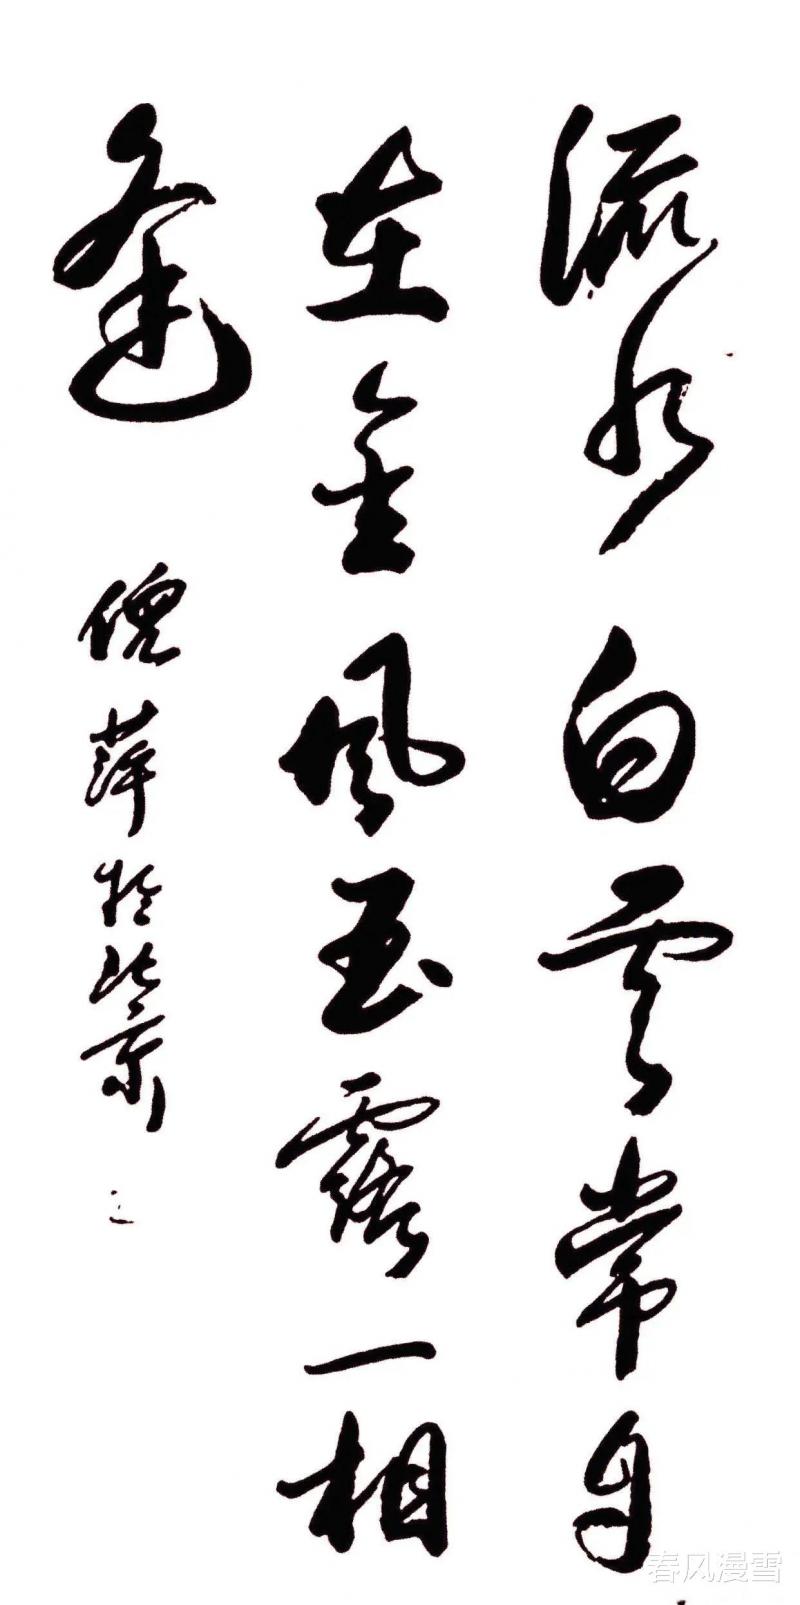 流水白云常自
在金风玉露一相
逢
倪萍于北京
春风漫雪